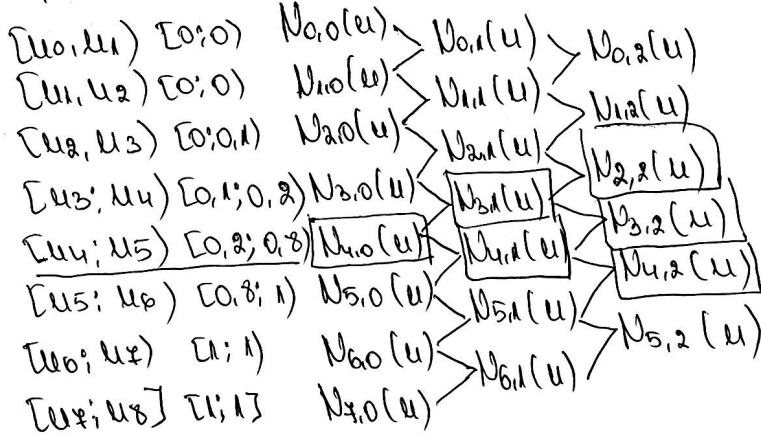 [u0, u1) [0; 0) N0,0(u) N0,1(u) N0,2(u)
[u1, u2) [0; 0) N1,0(u) N1,1(u) N1,2(u)
[u2, u3) [0; 0,1) N2,0(u) N2,1(u) N2,2(u)
[u3; u4) [0,1; 0,2) N3,0(u) N3,1(u) N3,2(u)
[u4; u5) [0,2; 0,8) N4,0(u) N4,1(u) N4,2(u)
[u5; u6) [0,8; 1) N5,0(u) N5,1(u) N5,2(u)
[u6; u7) [1; 1) N6,0(u) N6,1(u)
[u7; u8] [1; 1] N7,0(u)